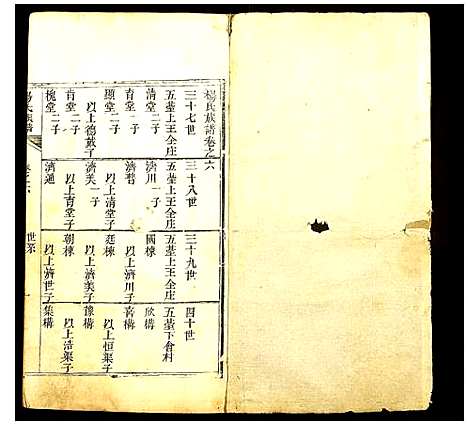 楊氏族譜卷之六
三十七世
五墓上王全庄
清堂二子
育堂一子
顯堂二子
以上德戴子
育堂二子
槐堂二子
三十八世
五墓上王全庄
濟川一子
濟
以上清堂子
濟美一子
以上育堂子
濟通
三十九世
五墓上王全庄
國棟
以上濟川子
廷棟
以上濟美子
朝棟
以上濟世子
四十世
五墓下會村
欣構
育構
以上恒渠子
豫構
以上浩渠子
集構
世系